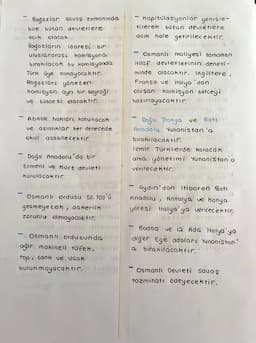 - Boğazlar savaş zamanında
bile bütün devletlere
açık olacak.
Boğazların idaresi bir
uluslararası komisyona
bırakılacak bu komisyonda
Türk üye olmayacaktır.
Boğazları yöneten
komisyon ayrı bir bayrağı
ve bütçesi olacaktır.
- Azınlık hakları korunacak
ve azınlıklar her derecede
okul açabilecektir
- Doğu Anadolu'da bir
Ermeni ve Kürt devleti
kurulacaktır.
- Osmanlı ordusu 50.700'ü
geçmeyecek, askerlik
zorunlu olmayacaktır.
- Osmanlı ordusunda
ağır makineli tüfek,
top, tank ve uçak
bulunmayacaktır.
- Kapitülasyonlar genişle-
tilerek bütün devletlere
açık hale getirilecektir.
- Osmanlı maliyesi tamamen
itilaf devletlerinin deneti-
minde olacaktır. İngiltere,
Fransa ve İtalya'dan
oluşan komisyon bütçeyi
hazırlayacaktır.
- Doğu Trakya ve Batı
Anadolu Yunanistan'a
bırakılacaktır.
İzmir Türklerde kalacak
ama yönetimi Yunanistan'a
verilecektir.
- Aydın'dan itibaren Batı
Anadolu, Antalya ve Konya
yöresi İtalya'ya verilecektir.
- Rodos ve 12 Ada İtalya'ya
diğer Ege adaları Yunanistan'
a bırakılacaktır.
- Osmanlı Devleti savaş
tazminatı ödeyecektir.